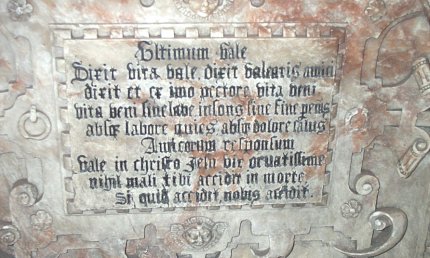 Ultimum vale
Dixit vita vale, dixit valeatis amici
dixit et ex imo pectore vita veni
vita veni sine labe insons sine fine
absq labore quies absq dolore
Amicorum responsum
Vale in christo Jesu vir ornatissime
nihil mali tibi accidit in morte
Si quid accidit nobis accidit.